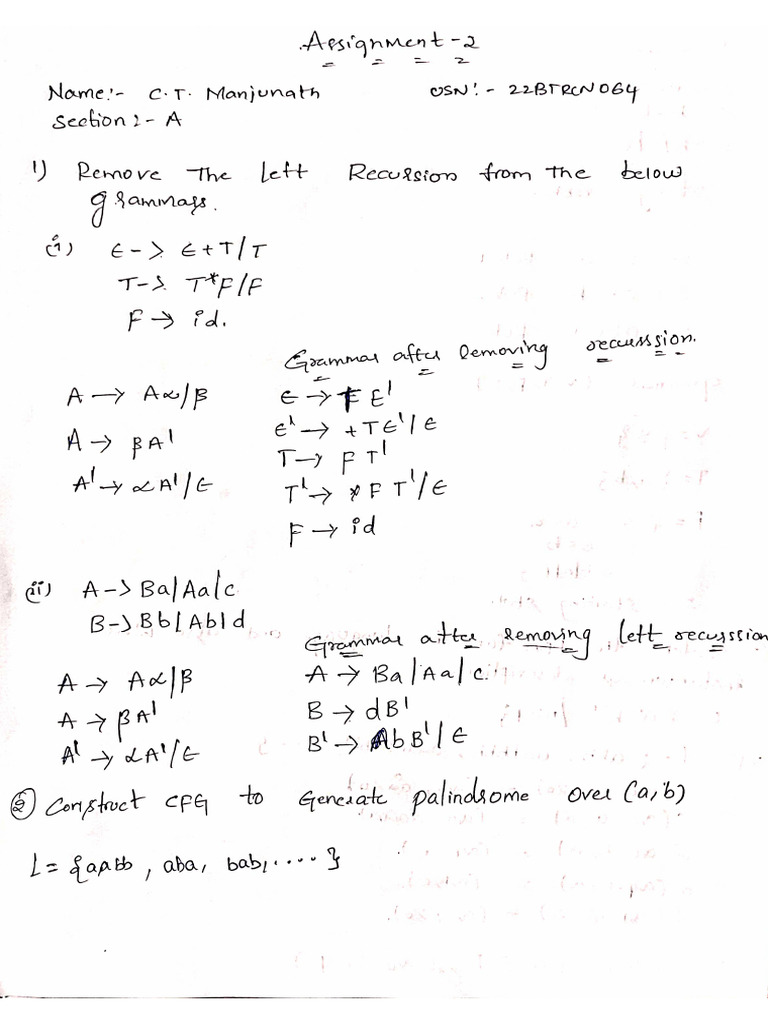 Assignment-2
Name:- C.T. Manjunath USN:- 22BTRCN064
Section:- A
1) Remove The Left Recursion from the below
grammars.
(i) E-> E+T/T
T-> T*F/F
F→ id.
Grammar after Removing recurssion.
A → Aα/β E → F E'
A → βA' E' → +TE'/E
A' → αA'/E T → F T'
T' → *F T'/E
F → id
(ii) A-> Ba/Aa/c
B-> Bb/Ab/d
Grammar after removing left recurssion
A → Aα/β A → Ba/Aa/c.
A → βA' B → dB'
A' → αA'/E B' → AbB'/E
② Construct CFG to Generate palindrome over (a,b)
L = { , aba, bab, .... }